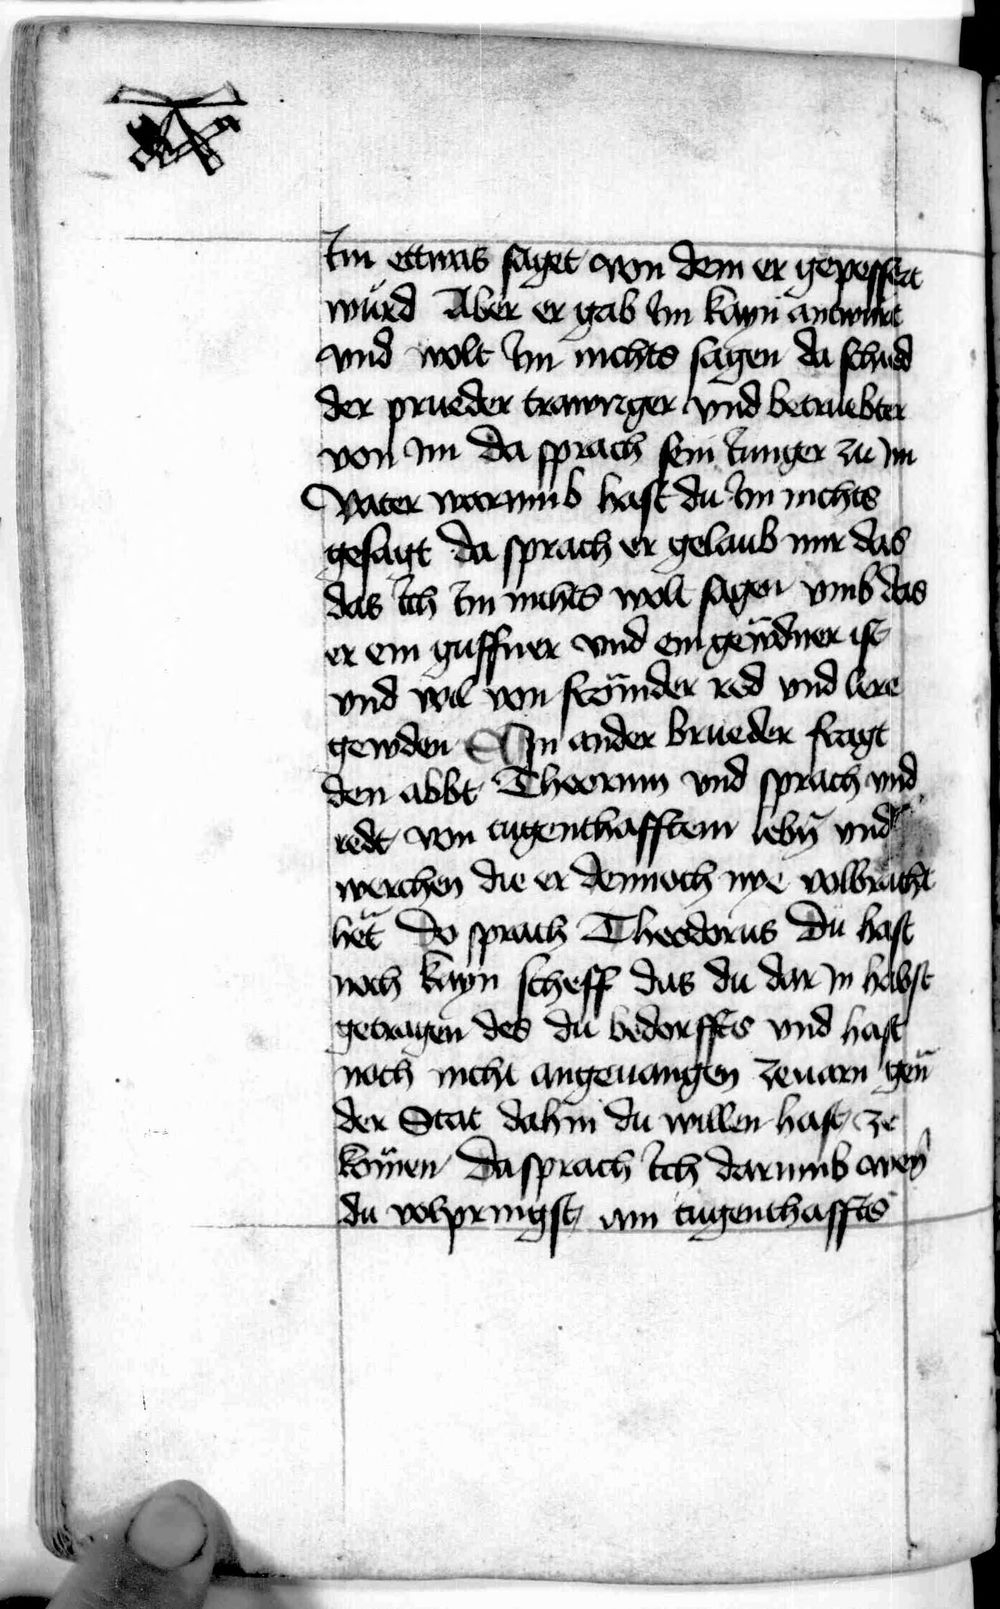 Im ettwas saget von dem er gepessert
wurd Aber er gab im kayn antwurt
vnd wolt im nichts sagen da schied
der prueder trawriger vnd betruebter
von im da sprach sein iunger zu im
Vater warumb hast du im nichts
gesagt da sprach er gelaub mir das
das ich im nichts wolt sagen vmb das
er ein guffner vnd ein gewdner ist
vnd wil von frömder red vnd lere
gewden Ein ander brueder fragt
den abbt Theorum vnd sprach vnd
redt von tugenthafftem lebn̄ vnd
werchen die er dennoch nye volbracht
het Do sprach Theodorus Du hast
noch kayn scheff das du dar in habst
getragen des du bedorffts vnd hast
noch nicht angeuangen zeuarn gen̄
der Stat dahin du willen hast ze
kom̄en Da sprach ich darumb wen̄
du volpringst ain tugenthaffts